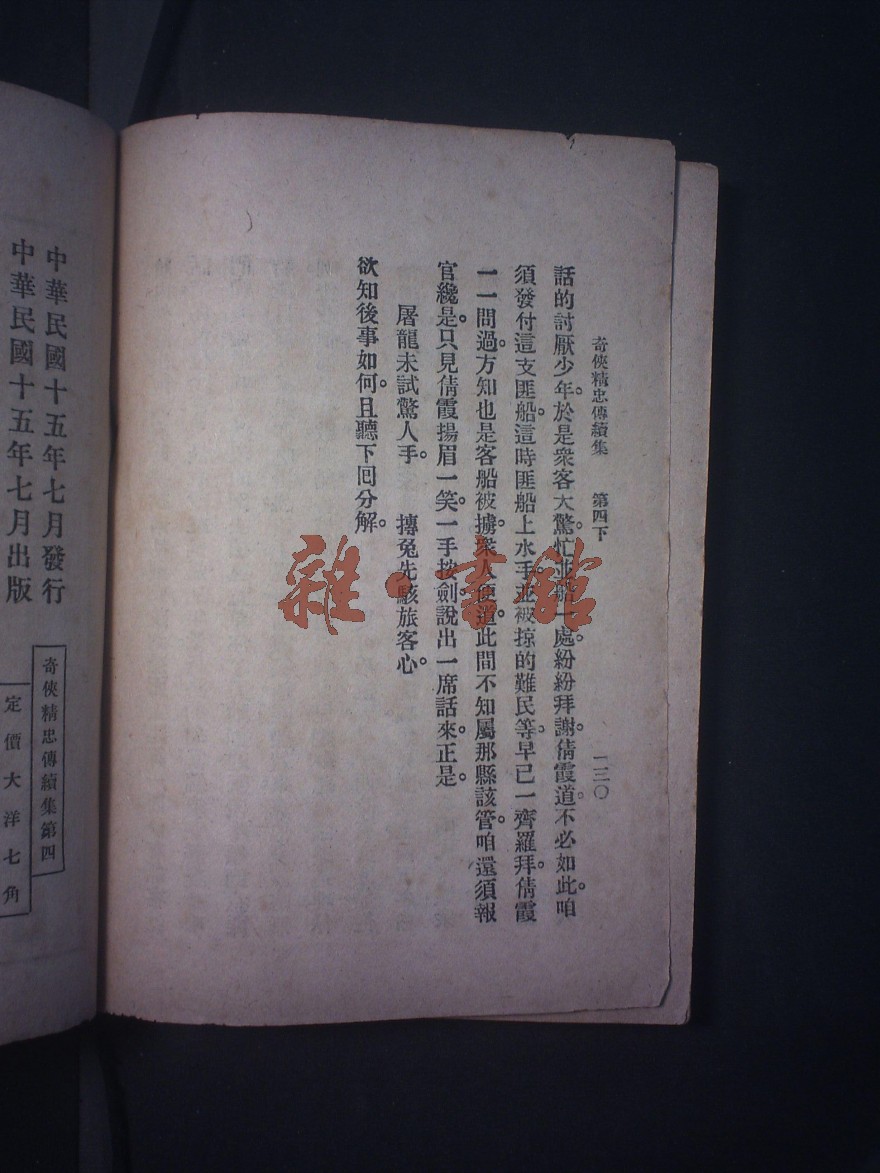 奇俠精忠傳續集　第四下　一三〇
話的討厭少年。於是衆客大驚。忙並船一處。紛紛拜謝。倩霞道。不必如此。咱
須發付這支匪船。這時匪船上水手。並被掠的難民等。早已一齊羅拜。倩霞
一一問過。方知也是客船被擄。衆人便道。此間不知屬那縣該管。咱還須報
官纔是。只見倩霞揚眉一笑。一手按劍。說出一席話來。正是。
屠龍未試驚人手。　摶兔先駭旅客心。
欲知後事如何。且聽下囘分解。
中華民國十五年七月發行
中華民國十五年七月出版
奇俠精忠傳續集第四
定價大洋七角
雜書館